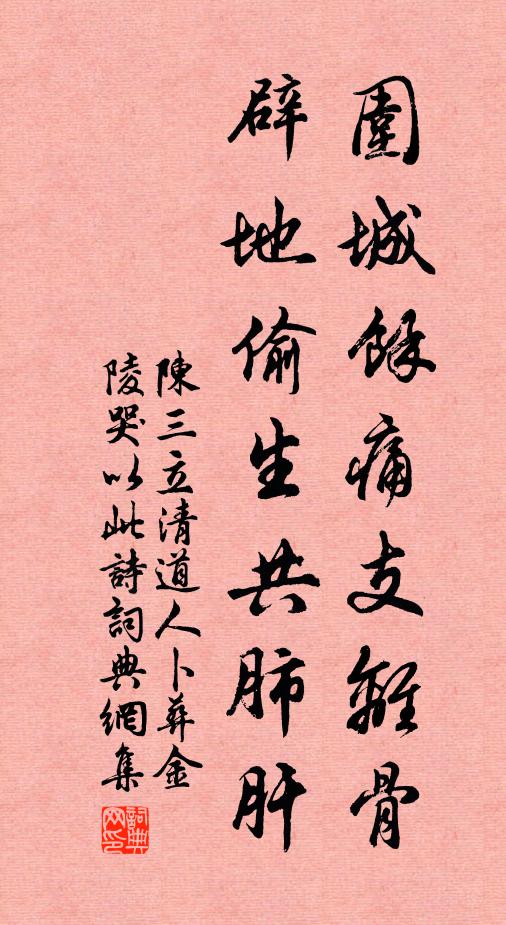 圍城餘痛支離骨
辟地偷生共肺肝
陳三立清道人卜葬金
陵哭以此詩詞典網集
詞典
网印